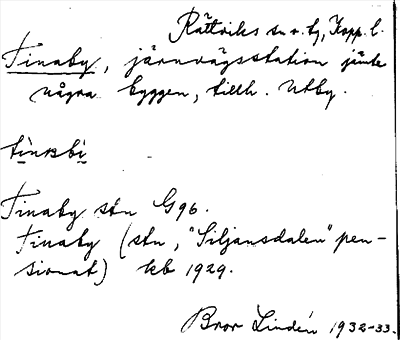 Rättviks sn o. tg, Kopp. l.
Finaby, järnvägsstation jämte
några byggen, tillh. Utby.
Finaby stn G96.
Finaby (stn, "Siljansdalen" pen-
sionat) kb 1929.
Bror Lindén 1932-33.